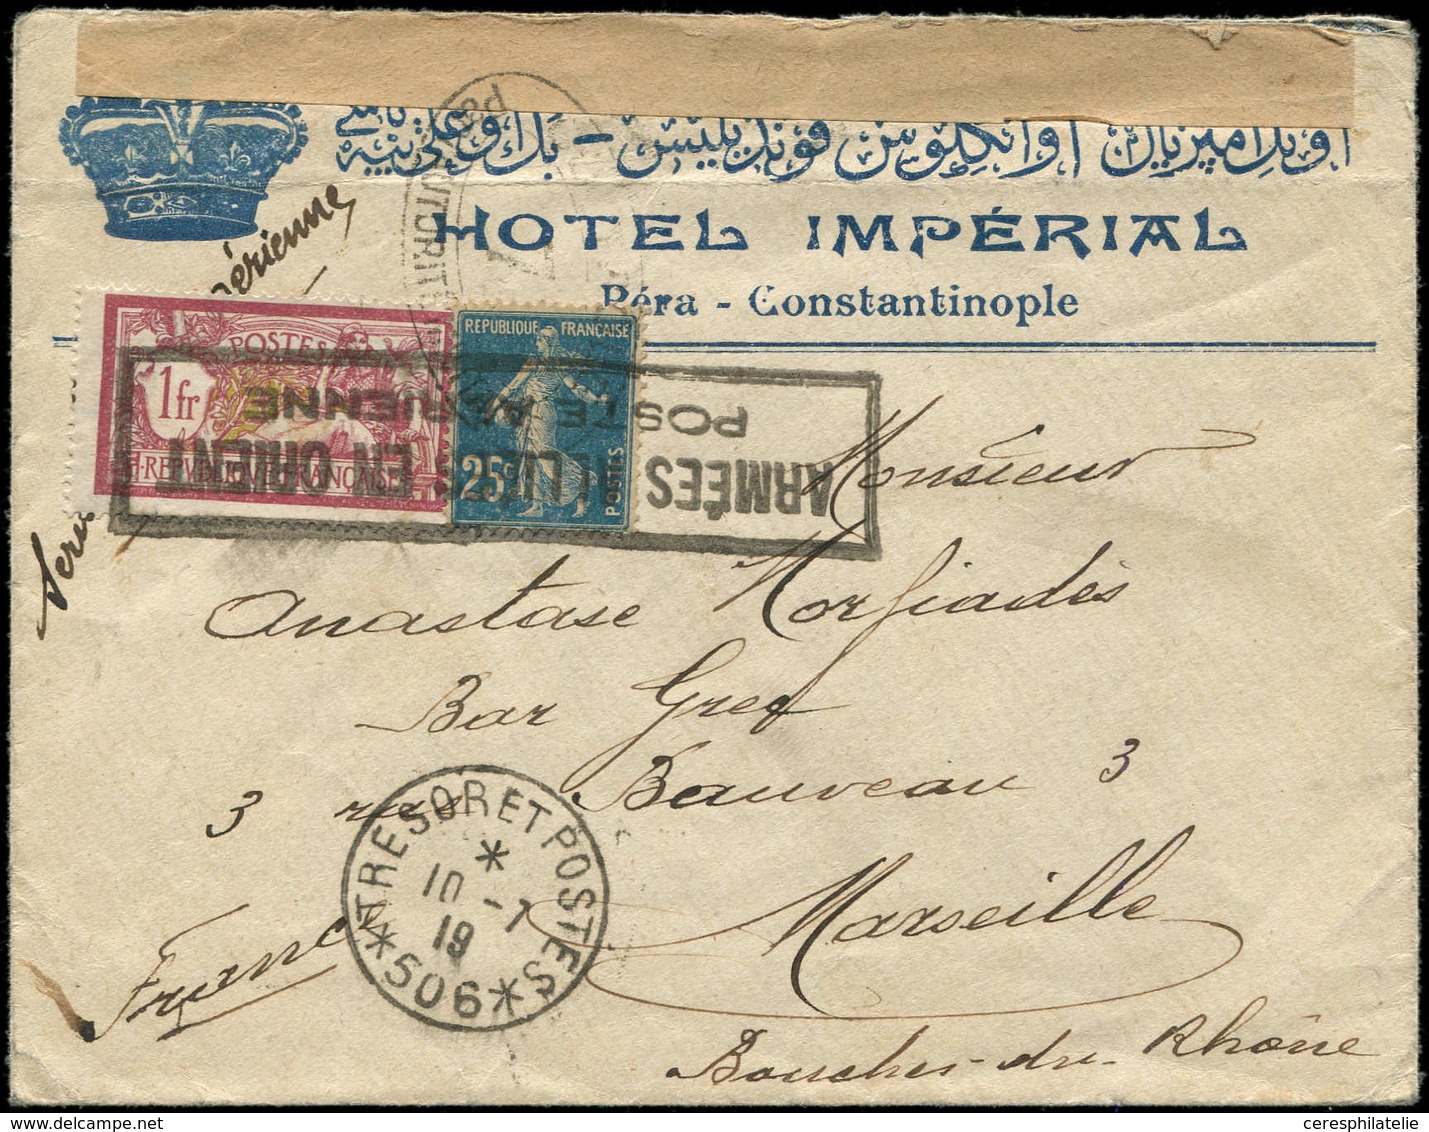 اوتل امپريال اوانكلوس فونديليس - بك اوغلى
HOTEL IMPÉRIAL
Péra - Constantinople
aérienne
POSTES
1 fr
REPUBLIQUE FRANÇAISE
REPUBLIQUE FRANÇAISE
25c
POSTES
ARMÉES EN ORIENT
POSTE AERIENNE
AUTORIT
Monsieur
Anastase Morfiadès
Bar Grec
3 rue Bauveau 3
Marseille
Bouches-du-Rhône
France
TRESOR ET POSTES
10 - 7
19
*506*
ceresphilatelie